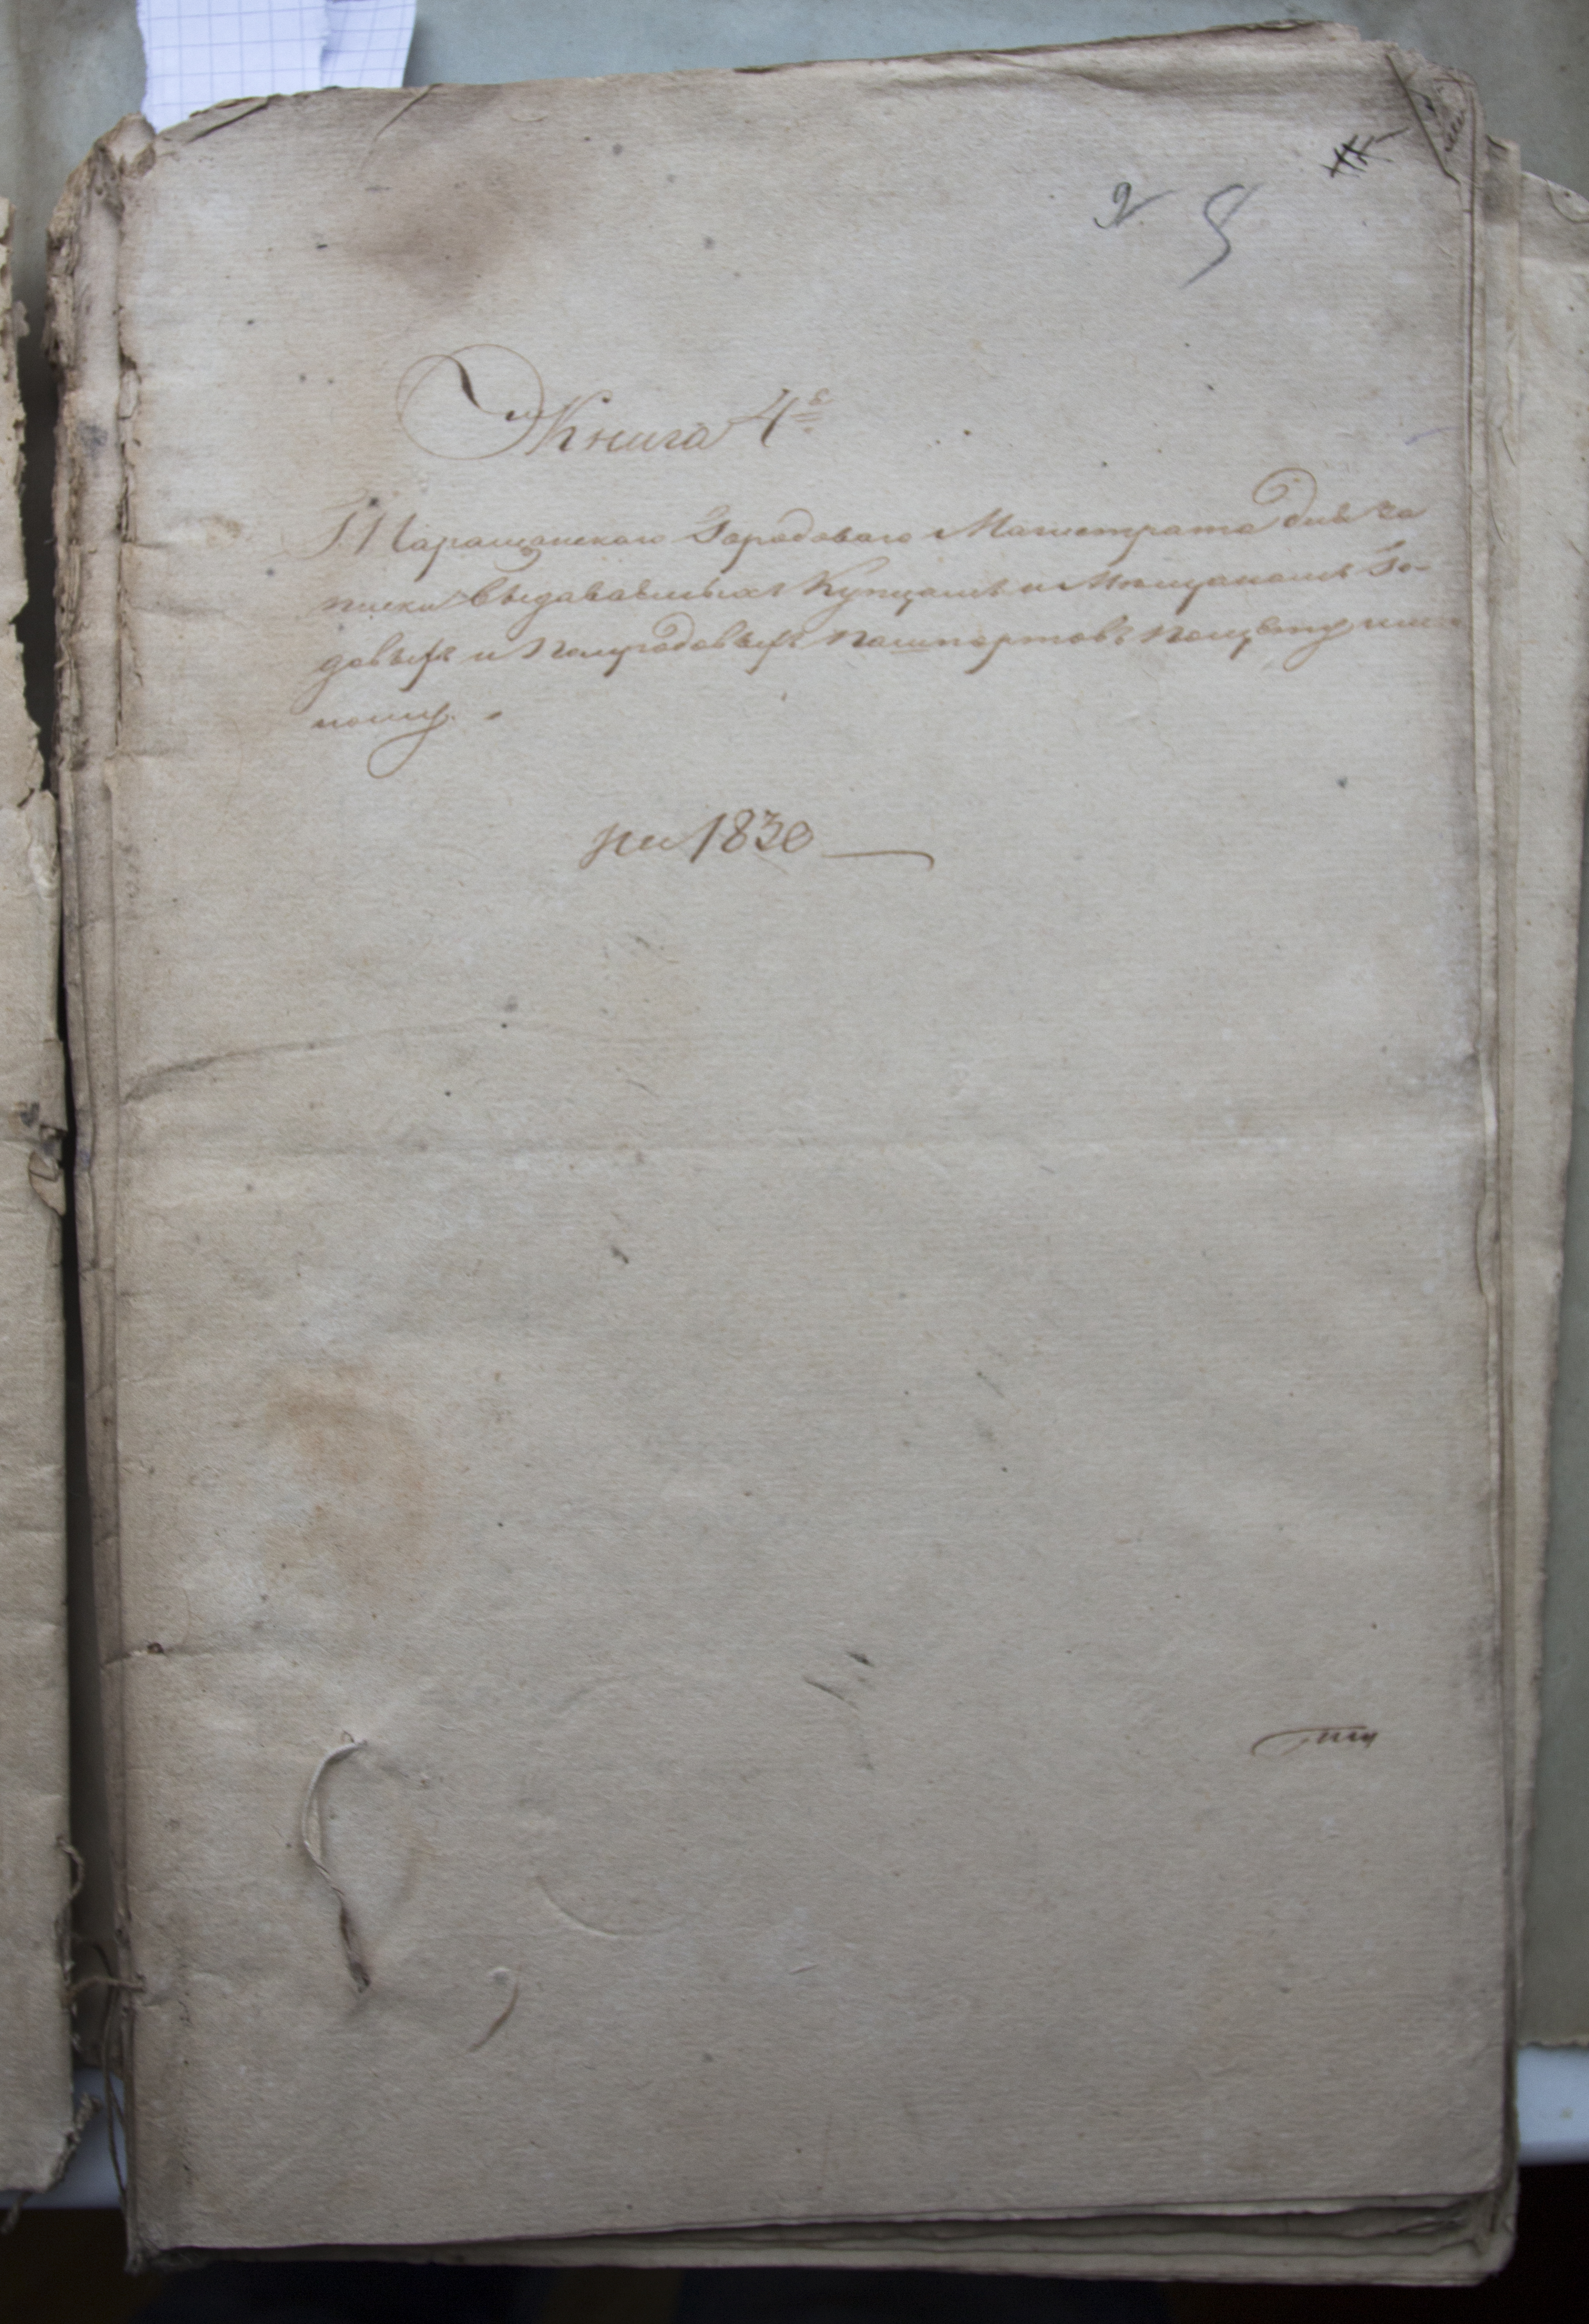 2 5
Книга 4я
Таращанскаго Городоваго Магистрата для за
писки выдаваемыхъ Купцамъ и Мещанамъ Го-
довыхъ и Полугодовыхъ пашпортовъ
1830